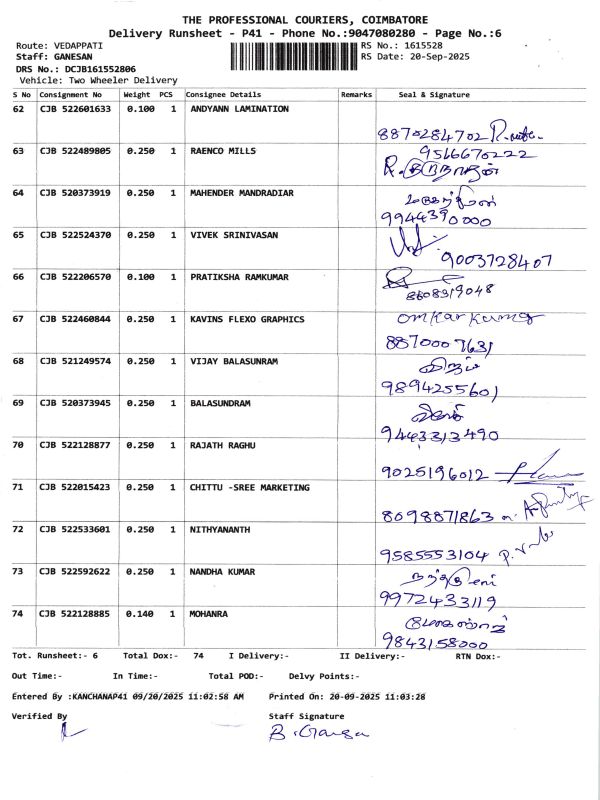 THE PROFESSIONAL COURIERS, COIMBATORE
Delivery Runsheet - P41 - Phone No.:9047080280 - Page No.:6
Route: VEDAPPATI RS No.: 1615528
Staff: GANESAN RS Date: 20-Sep-2025
DRS No.: DCJB161552806
Vehicle: Two Wheeler Delivery
S No Consignment No Weight PCS Consignee Details Remarks Seal & Signature
62 CJB 522601633 0.100 1 ANDYANN LAMINATION
8870284702
63 CJB 522489805 0.250 1 RAENCO MILLS 9566670222
64 CJB 520373919 0.250 1 MAHENDER MANDRADIAR
9944390000
65 CJB 522524370 0.250 1 VIVEK SRINIVASAN
9003728407
66 CJB 522206570 0.100 1 PRATIKSHA RAMKUMAR
8608319048
67 CJB 522460844 0.250 1 KAVINS FLEXO GRAPHICS omkar kumar
8870007631
68 CJB 521249574 0.250 1 VIJAY BALASUNRAM
9894255601
69 CJB 520373945 0.250 1 BALASUNDRAM
9443313490
70 CJB 522128877 0.250 1 RAJATH RAGHU
9025196012
71 CJB 522015423 0.250 1 CHITTU -SREE MARKETING
8098871863
72 CJB 522533601 0.250 1 NITHYANANTH
9585553104
73 CJB 522592622 0.250 1 NANDHA KUMAR
9972433119
74 CJB 522128885 0.140 1 MOHANRA
9843158000
Tot. Runsheet:- 6 Total Dox:- 74 I Delivery:- II Delivery:- RTN Dox:-
Out Time:- In Time:- Total POD:- Delvy Points:-
Entered By :KANCHANAP41 09/20/2025 11:02:58 AM Printed On: 20-09-2025 11:03:28
Verified By Staff Signature
B. Ganesa